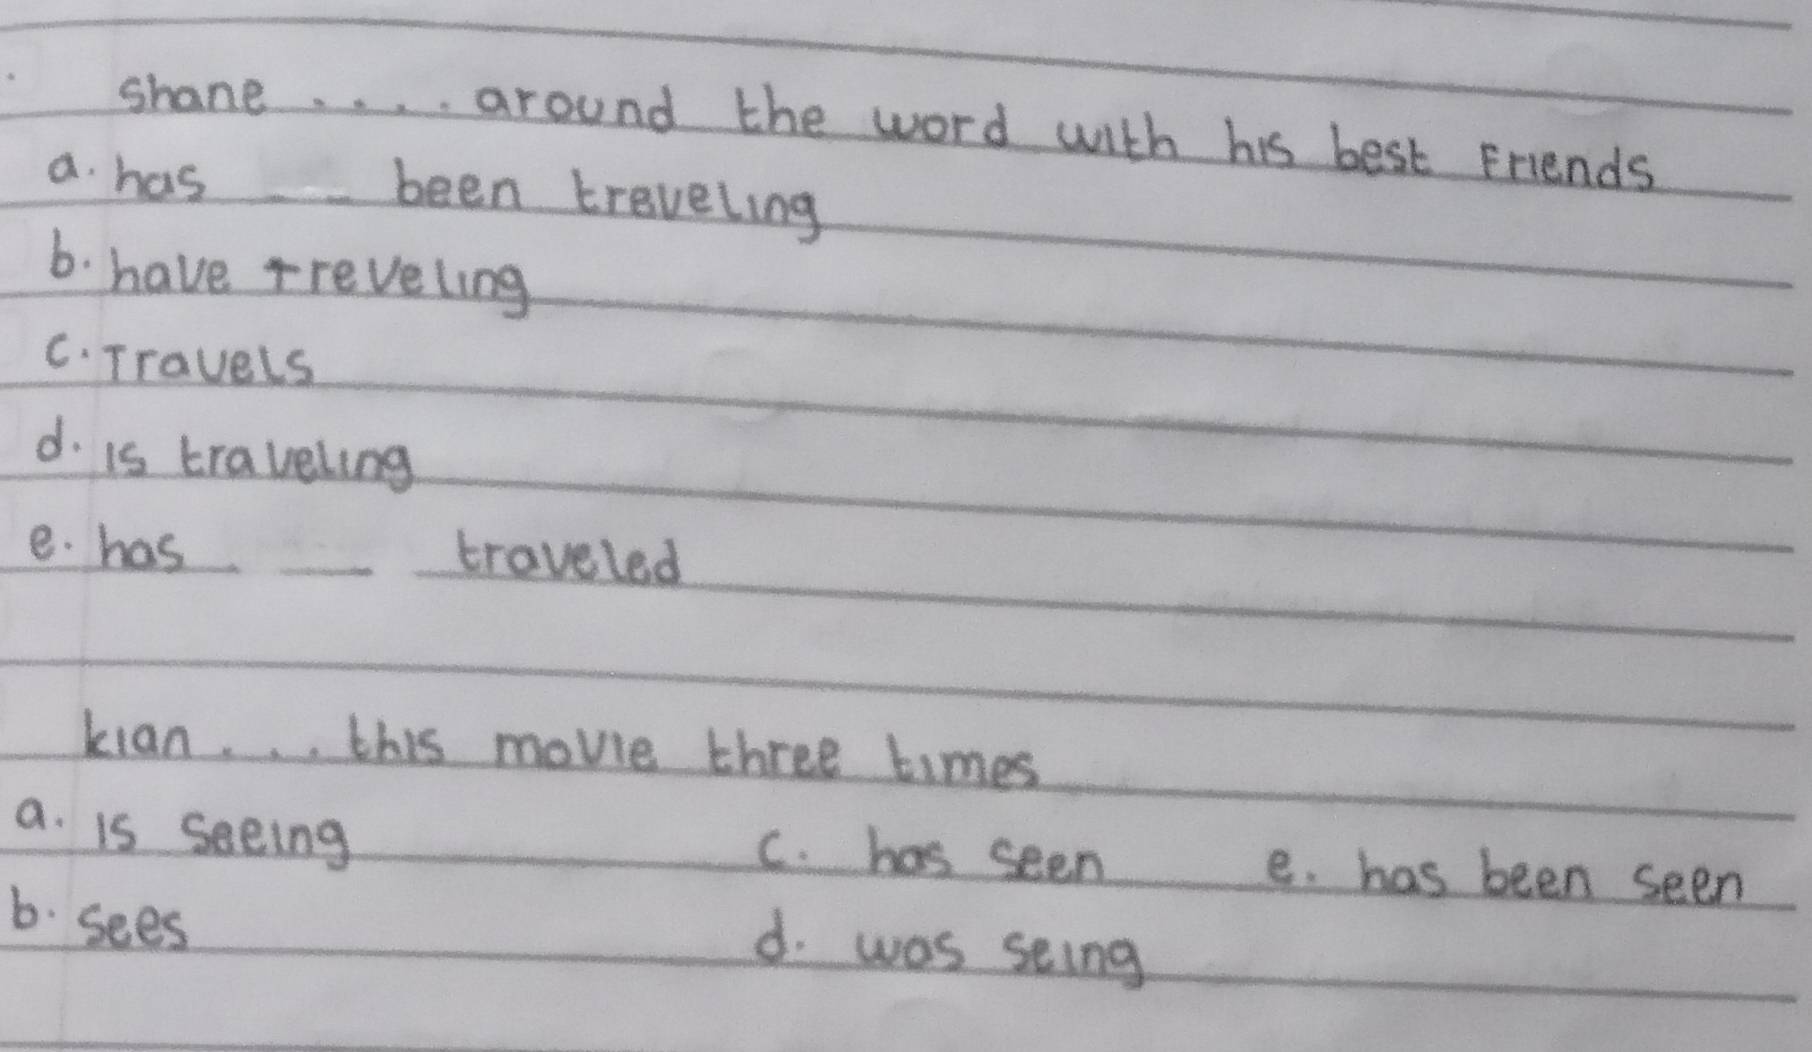 shane .... around the word with his best Friends
a. has __ been treveling
b. have treveling
c. Travels
d. is traveling
e. has __ traveled
kian ... this movie three times
a. is seeing c. has seen e. has been seen
b. sees d. was seing